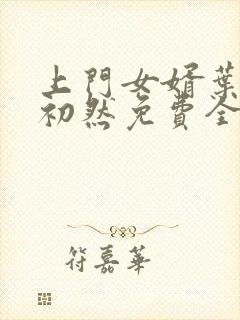 上門女婿葉
初然免費全
符嘉華